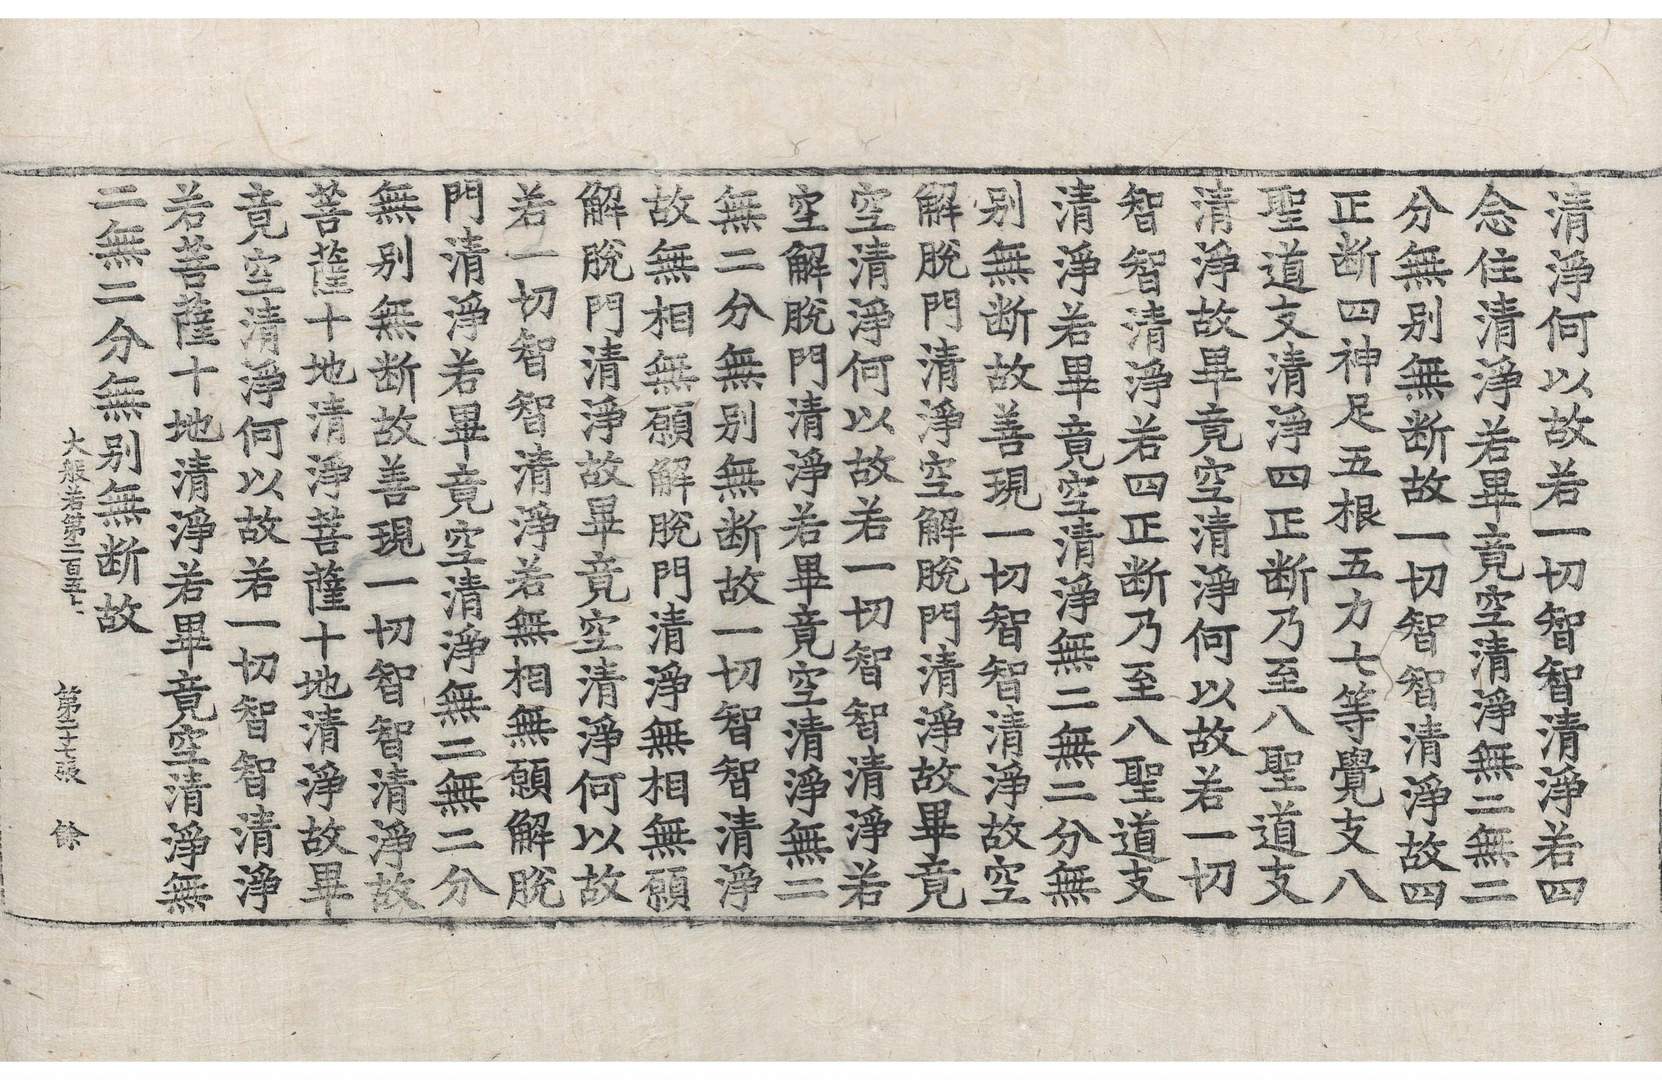 清淨何以故若一切智智清淨若四
念住清淨若畢竟空清淨無二無二
分無别無断故一切智智清淨故四
正断四神足五根五力七等覺支八
聖道支清淨四正断乃至八聖道支
清淨故畢竟空清淨何以故若一切
智智清淨若四正断乃至八聖道支
清淨若畢竟空清淨無二無二分無
别無断故善現一切智智清淨故空
解脫門清淨空解脫門清淨故畢竟
空清淨何以故若一切智智清淨若
空解脫門清淨若畢竟空清淨無二
無二分無别無断故一切智智清淨
故無相無願解脫門清淨無相無願
解脫門清淨故畢竟空清淨何以故
若一切智智清淨若無相無願解脫
門清淨若畢竟空清淨無二無二分
無别無断故善現一切智智清淨故
菩薩十地清淨菩薩十地清淨故畢
竟空清淨何以故若一切智智清淨
若菩薩十地清淨若畢竟空清淨無
二無二分無别無断故
大般若第二百五十 第二十七張 餘